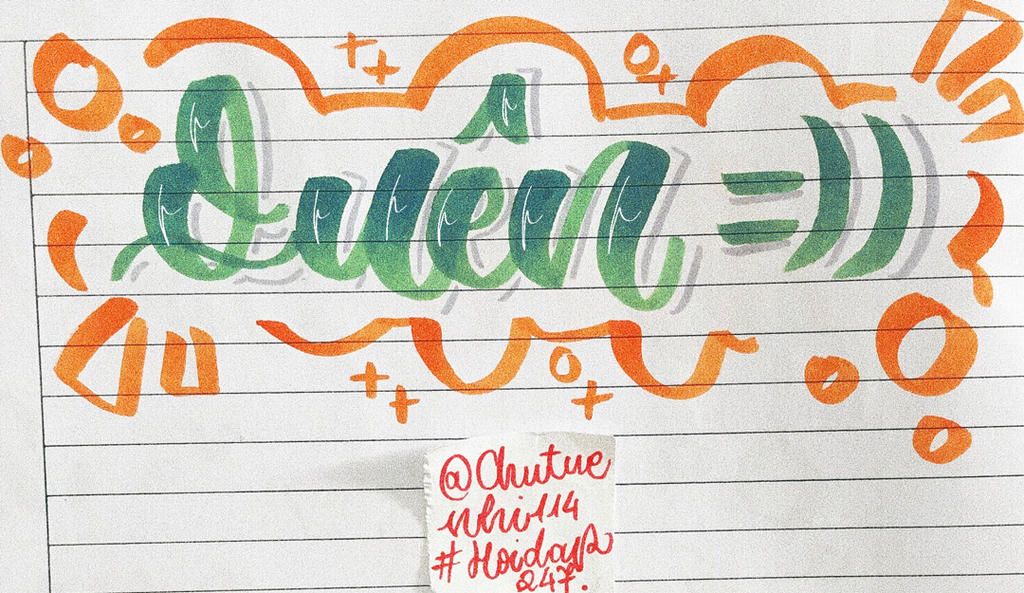 Quên =))
@Chutue
nhi114
#Hoidap
247.